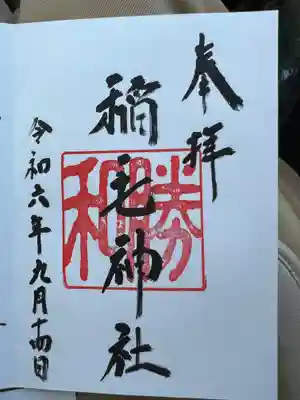 奉拝
勝和
稲毛神社
令和六年九月十四日